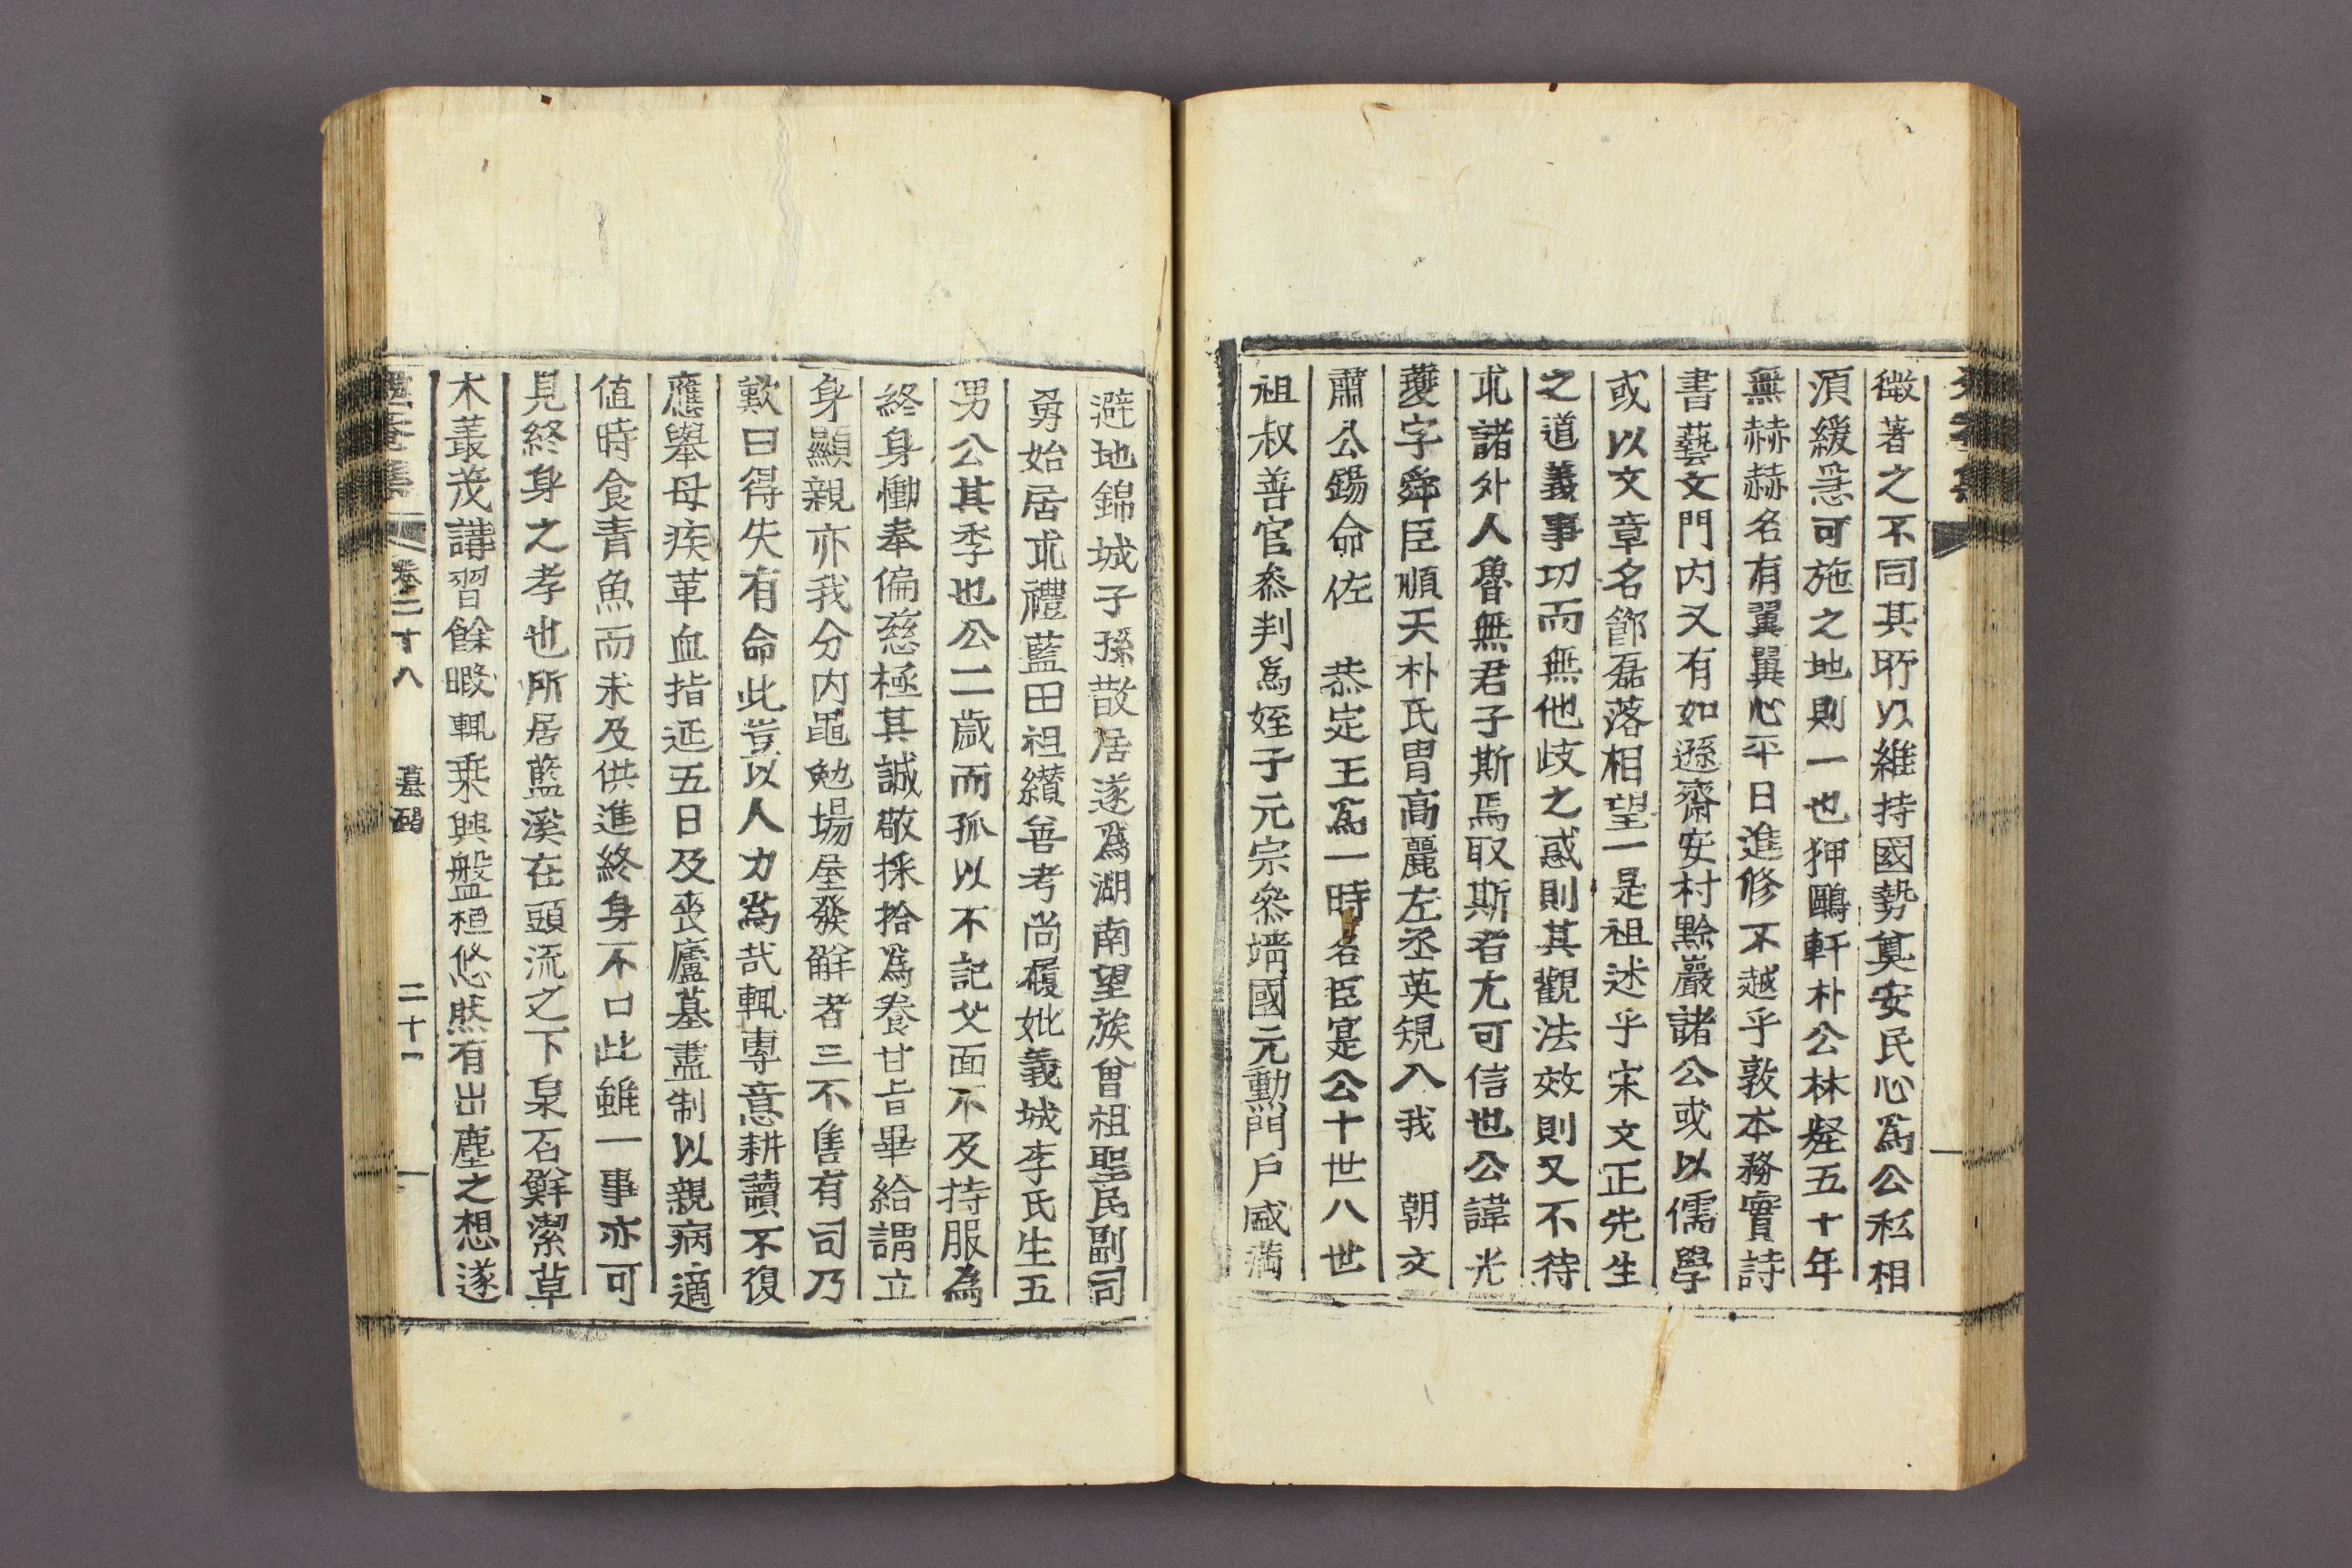 微著之不同其所以維持國勢奠安民心爲公私相
須緩急可施之地則一也狎鷗軒朴公林壑五十年
無赫赫名有翼翼心平日進修不越乎敦本務實詩
書藝文門内又有如遜齋安村黔巖諸公或以儒學
或以文章名節磊落相望一是祖述乎宋文正先生
之道義事功而無他歧之惑則其觀法效則又不待
求諸外人魯無君子斯焉取斯者尤可信也公諱光
夔字舜臣順天朴氏胄高麗左丞英規入我 朝文
肅公錫命佐 恭定王爲一時名臣寔公十世八世
祖叔善官叅判爲姪子元宗叅靖國元勳門戶盛滿
避地錦城子孫散居遂爲湖南望族曾祖聖民副司
勇始居求禮藍田祖纘善考尚履妣義城李氏生五
男公其季也公二歲而孤以不記父面不及持服為
終身慟奉偏慈極其誠敬採拾爲養甘旨畢給謂立
身顯親亦我分内黽勉場屋發觧者三不售有司乃
歎曰得失有命此豈以人力為哉輒專意耕讀不復
應舉母疾革血指延五日及喪廬墓盡制以親病適
值時食青魚而未及供進終身不口此雖一事亦可
見終身之孝也所居藍溪在頭流之下泉石鮮潔草
木叢茂講習餘暇輒乘興盤桓悠然有出塵之想遂
卷二十八 墓碣 二十一